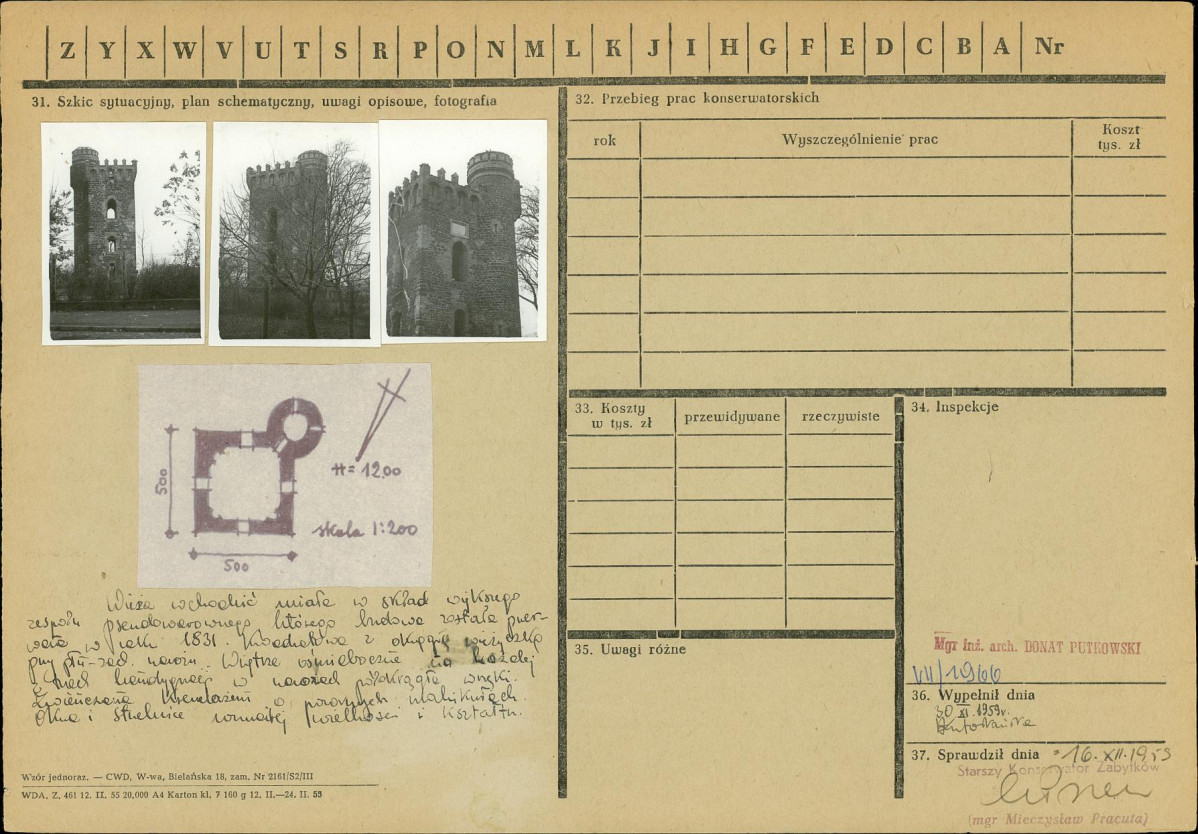 Z Y X W V U T S R P O N M L K J I H G F E D C B A Nr
31. Szkic sytuacyjny, plan schematyczny, uwagi opisowe, fotografia
500
500
H = 12.00
skala 1:200
Wieża wchodzić miała w skład większego
zespołu pseudowarownego którego budowa została przer-
wana w roku 1831. Kwadratowa z okrągłą wieżyczką
przy płn-zach. narożu. Wnętrze ośmioboczne na każdej
z trzech kondygnacji w narożach półokrągłe wnęki.
Zwieńczona krenelażem o machikułach.
Okna i strzelnice rozmaitej wielkości i kształtu.
Wzór jednoraz. — CWD, W-wa, Bielańska 18, zam. Nr 2161/S2/III
WDA. Z. 461 12. II. 55 20,000 A4 Karton kl. 7 160 g 12. II.—24. II. 53
32. Przebieg prac konserwatorskich
rok
Wyszczególnienie prac
Koszt
tys. zł
33. Koszty
w tys. zł
przewidywane
rzeczywiste
34. Inspekcje
Mgr inż. arch. DONAT PUTKOWSKI
VII/1966
35. Uwagi różne
36. Wypełnił dnia
30 XI. 1959r.
37. Sprawdził dnia 16. XII. 1959
Starszy Konserwator Zabytków
(mgr Mieczysław Pracuta)